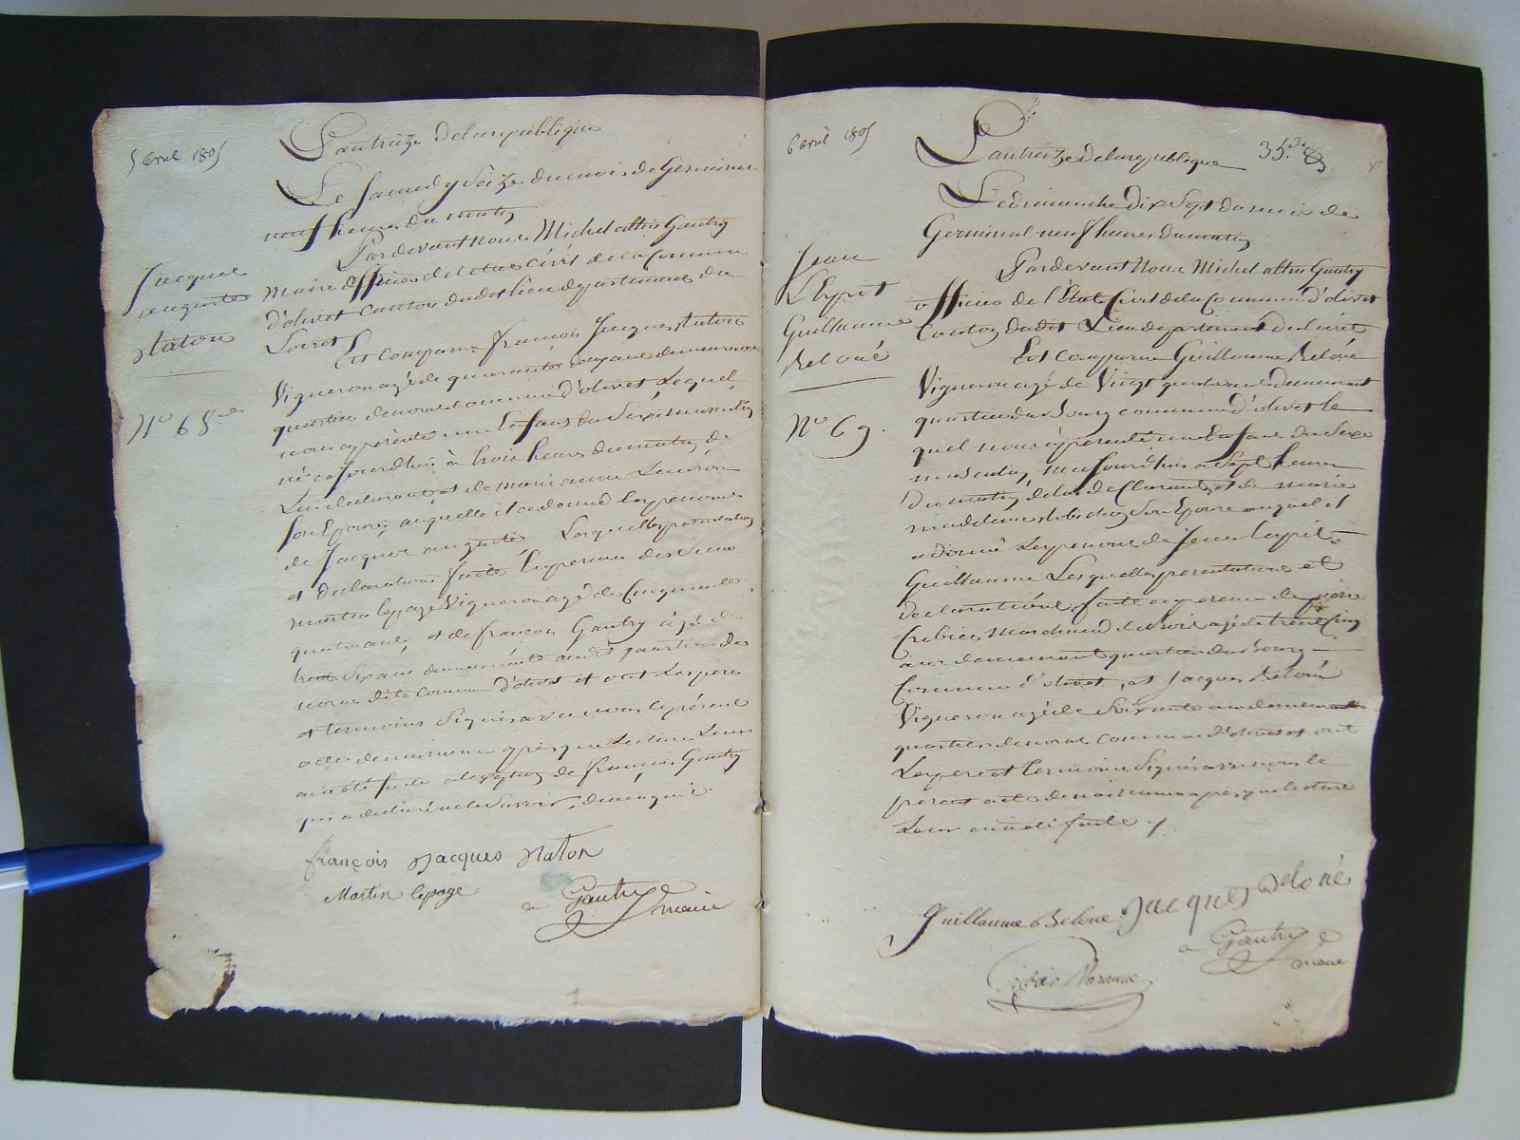 5 avril 1805
L'an treize de la republique
Le samedy Seize du mois de Germinal
neuf heures du matin
Pardevant nous Michel altin Gautry
maire officier de l'etat civil de la commune
d'olivet canton dudit lieu departement du
Loiret
Est comparu françois Jacques naton
Vigneron agé de quarante cinq ans demeurant
quartier de cette commune d'olivet Lequel
nous a présenté un Enfant du Sexe masculin
né ce jourdhuy à trois heures du matin de
Lui declarant et de marie anne
Son Epouse, auquelle il a donné les prenoms
de Jacque augustin Lesquelles presentation
et declaration faite En presence des Sieurs
martin lepage Vigneron agé de Cinquante
quatre ans, et de françois Gautry agé de
trente Six ans demeurants audit quartier de
dite commune d'olivet et ont Les pere
et temoins Signés avec nous le présent
acte de naissance après que Lecture Leur
a eté faite a l'exeption de françois Gautry
qui a declaré ne le Savoir, de ce enquis
Jacque
augustin
naton
No 68
françois Jacques naton
Martin lepage
Gautry
maire
6 avril 1805
35
L'an treize de la republique
Le dimanche Dix Sept du mois de
Germinal neuf heures du matin
Pardevant Nous Michel altin Gautry
officier de l'Etat Civil de la Commune d'olivet
Canton dudit Lieu departement du Loiret
Est Comparu Guillaume Beloué
Vigneron agé de Vingt quatre ans demeurant
quartier du Bourg commune d'olivet le
quel nous a presenté un Enfant du Sexe
masculin, né ce jourdhui a Sept heures
du matin, de lui declarant et de marie
madelaine Son Epouse auquel il
a donné Les prenoms de Jean Esprit
Guillaume Lesquelles presentation et
declaration faite en presence de
Marchand agé de trente Cinq
ans demeurant quartier du Bourg
Commune d'olivet, et Jacques Beloué
Vigneron agé de Soixante ans demeurant
quartier commune d'olivet et ont
Les pere et temoins Signés avec nous le
present acte de naissance après que lecture
Leur en a eté faite
Jean
Esprit
Guillaume
Beloué
No 69.
Guillaume Beloue Jacques Beloué
Gautry
maire